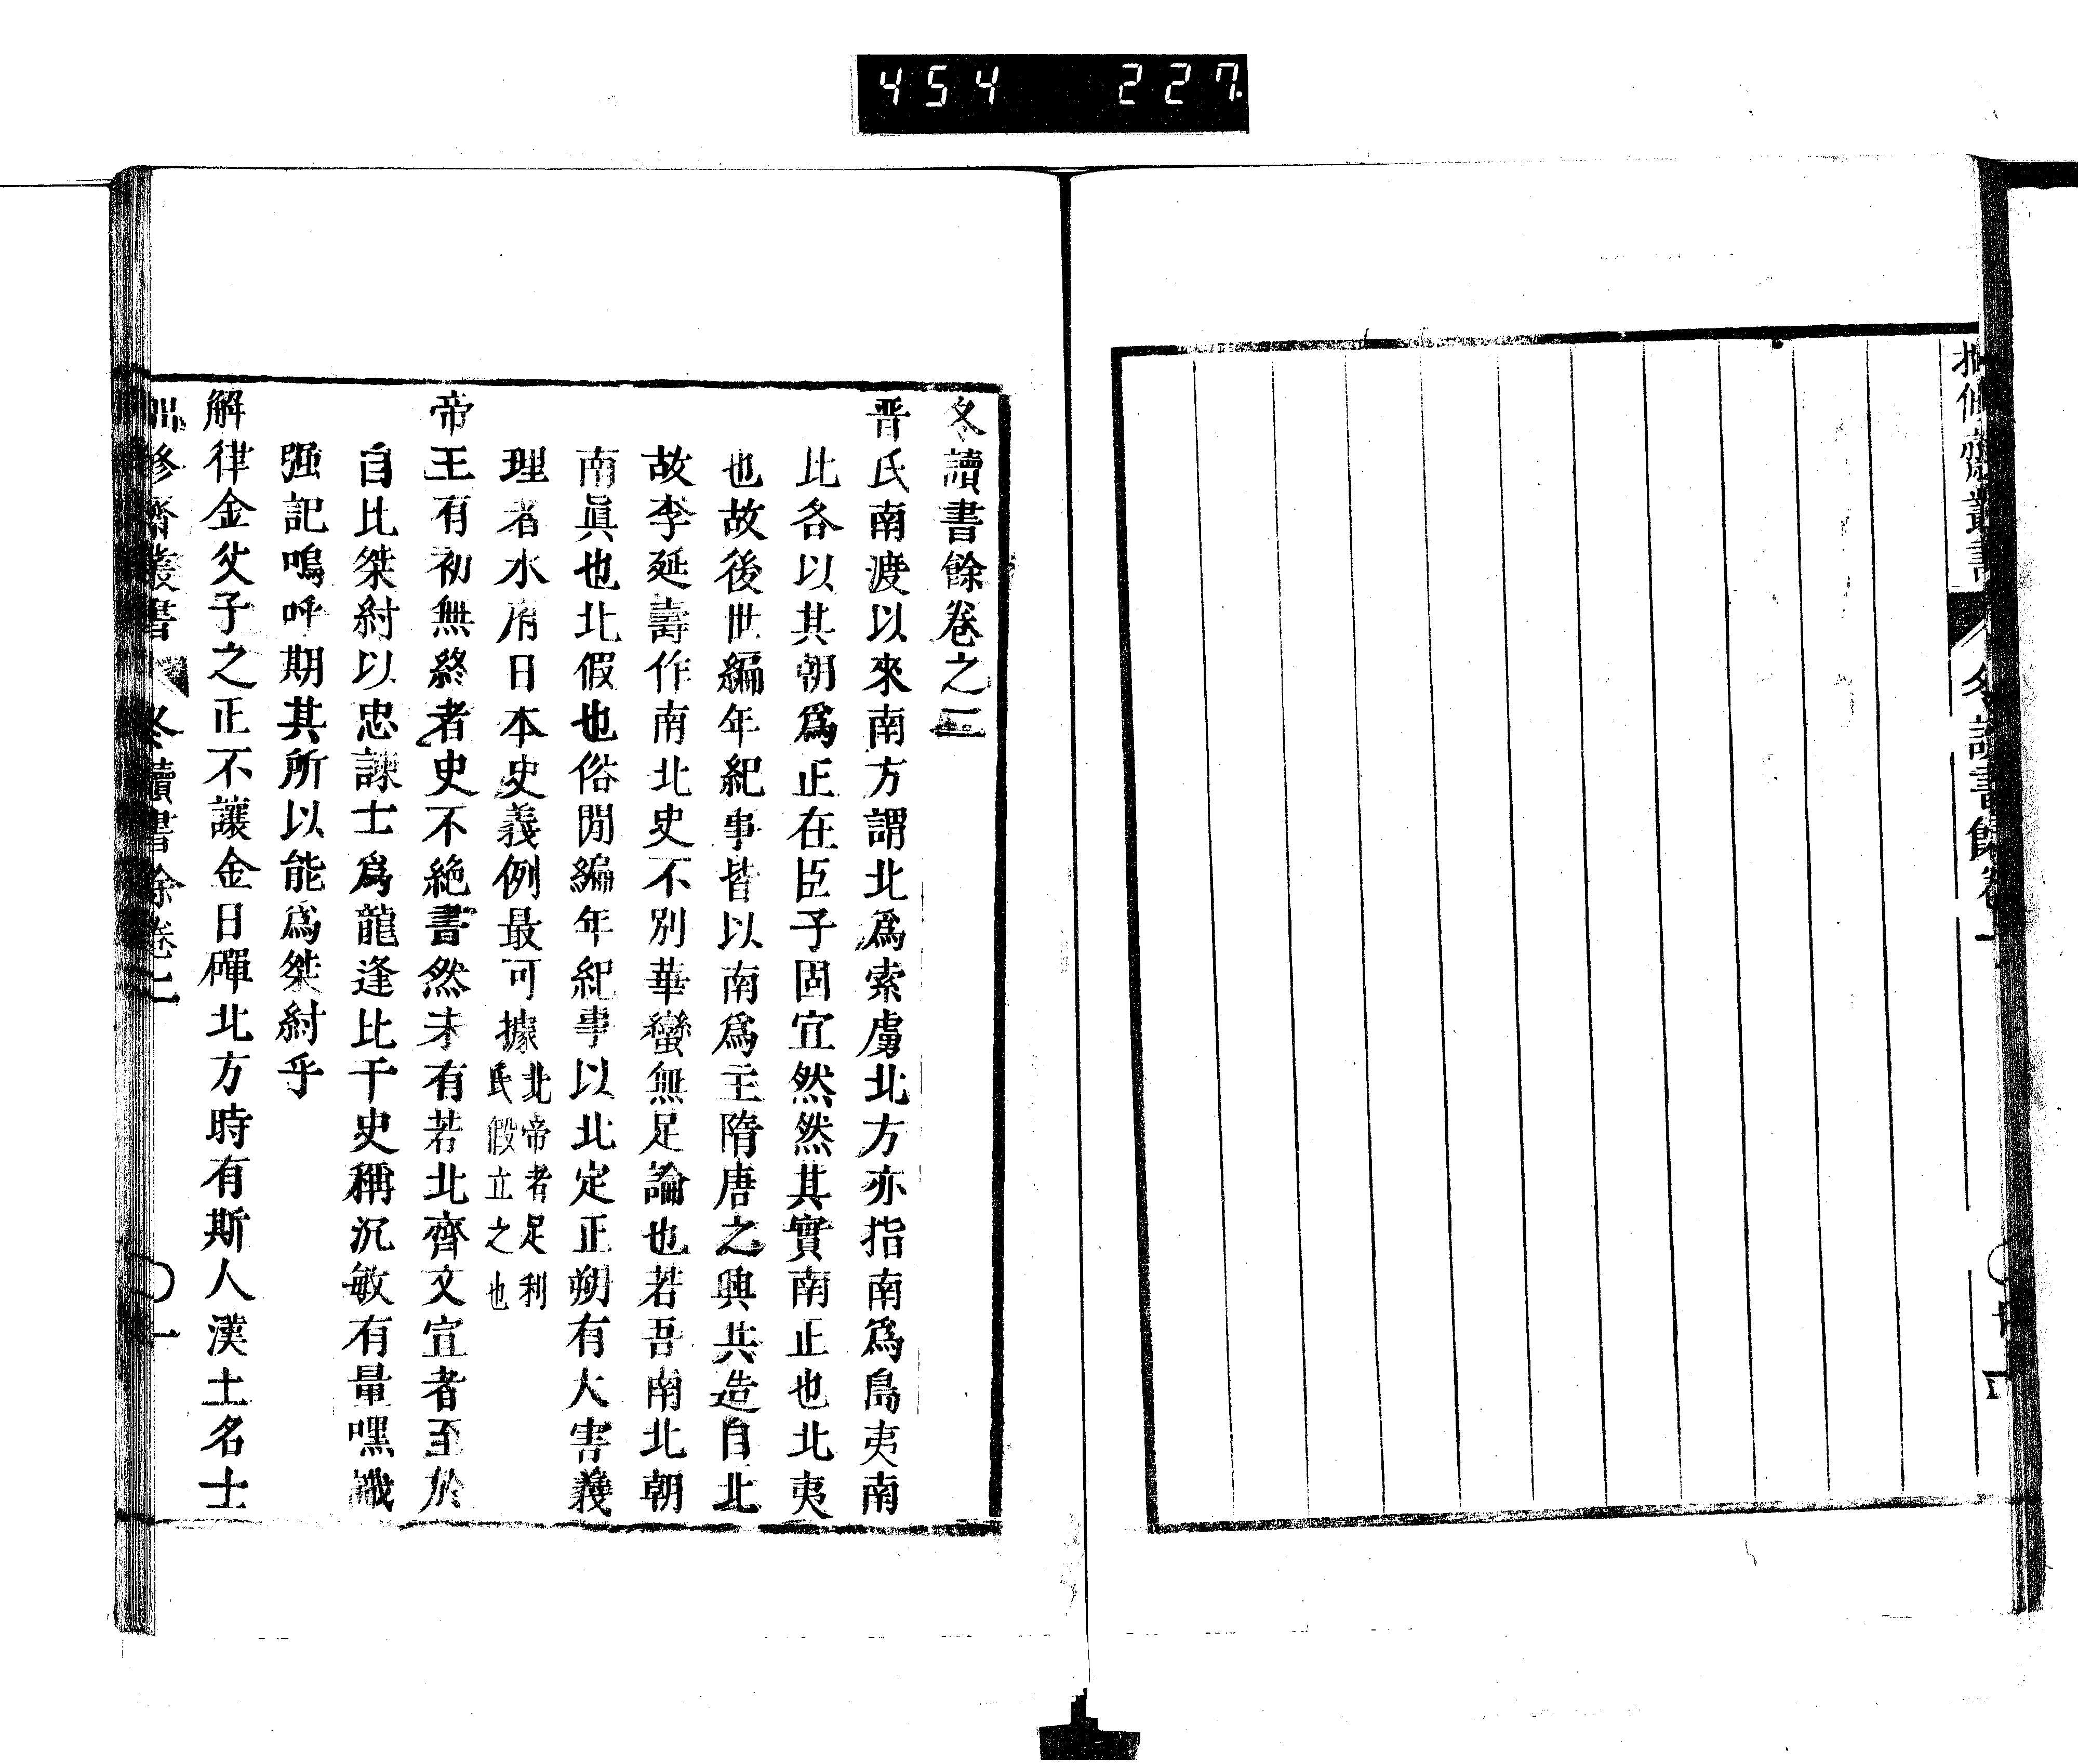 454 227.
冬讀書餘卷
冬讀書餘卷之二
晋氏南渡以來南方謂北爲索虜北方亦指南爲島夷南
比各以其朝爲正在臣子固宜然然其實南正也北夷
也故後世編年紀事皆以南爲主隋唐之興共造自北
故李延壽作南北史不別華蠻無足論也若吾南北朝
南眞也北假也俗閒編年紀事以北定正朔有大害義
理者水府日本史義例最可據北帝者足利氏假立之也
帝王有初無終者史不絶書然未有若北齊文宣者至於
自比桀紂以忠諫士爲龍逢比干史稱沉敏有量嘿識
强記嗚呼期其所以能爲桀紂乎
解律金父子之正不讓金日磾北方時有斯人漢土名士
修齋叢書 冬讀書餘卷二 〇一